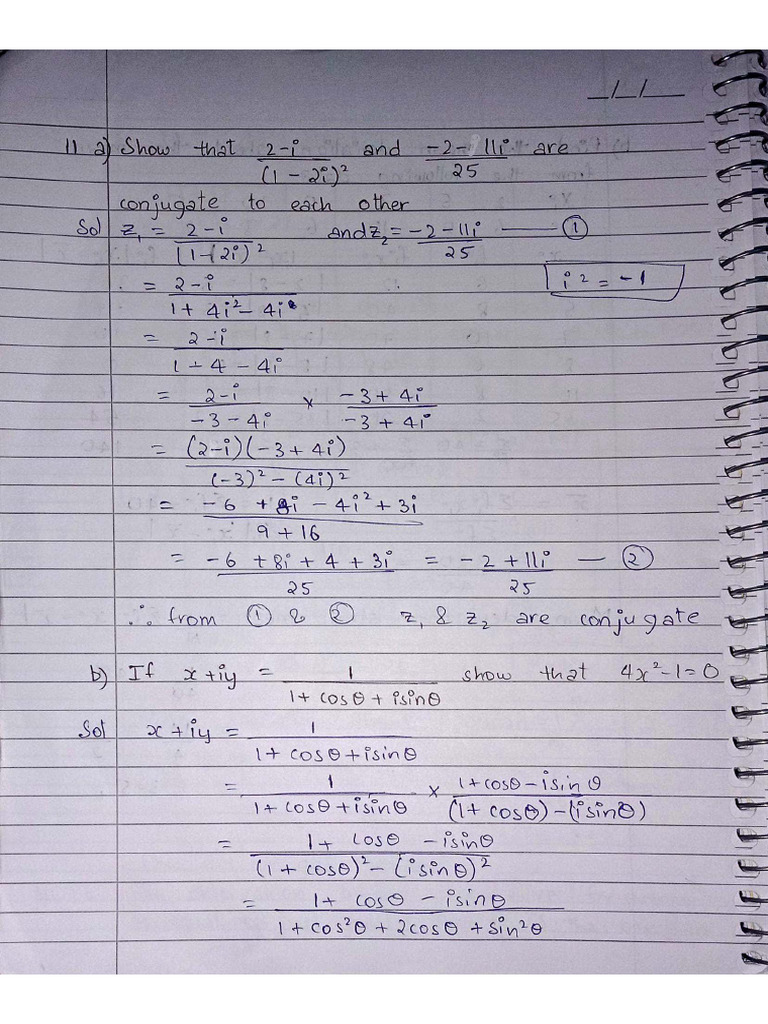 _/_/_
11 a) Show that (2-i)/(1-2i)² and (-2-11i)/25 are
conjugate to each other
Sol z₁ = (2-i)/(1-(2i)²) and z₂ = (-2-11i)/25 —— ①
= (2-i)/(1+4i²-4i) i² = -1
= (2-i)/(1-4-4i)
= (2-i)/(-3-4i) × (-3+4i)/(-3+4i)
= (2-i)(-3+4i)/((-3)²-(4i)²)
= (-6+8i-4i²+3i)/(9+16)
= (-6+8i+4+3i)/25 = (-2+11i)/25 — ②
∴ from ① & ② z₁ & z₂ are conjugate
b) If x+iy = 1/(1+cosθ+isinθ) show that 4x²-1=0
Sol x+iy = 1/(1+cosθ+isinθ)
= 1/(1+cosθ+isinθ) × (1+cosθ-isinθ)/((1+cosθ)-(isinθ))
= (1+cosθ-isinθ)/((1+cosθ)²-(isinθ)²)
= (1+cosθ-isinθ)/(1+cos²θ+2cosθ+sin²θ)